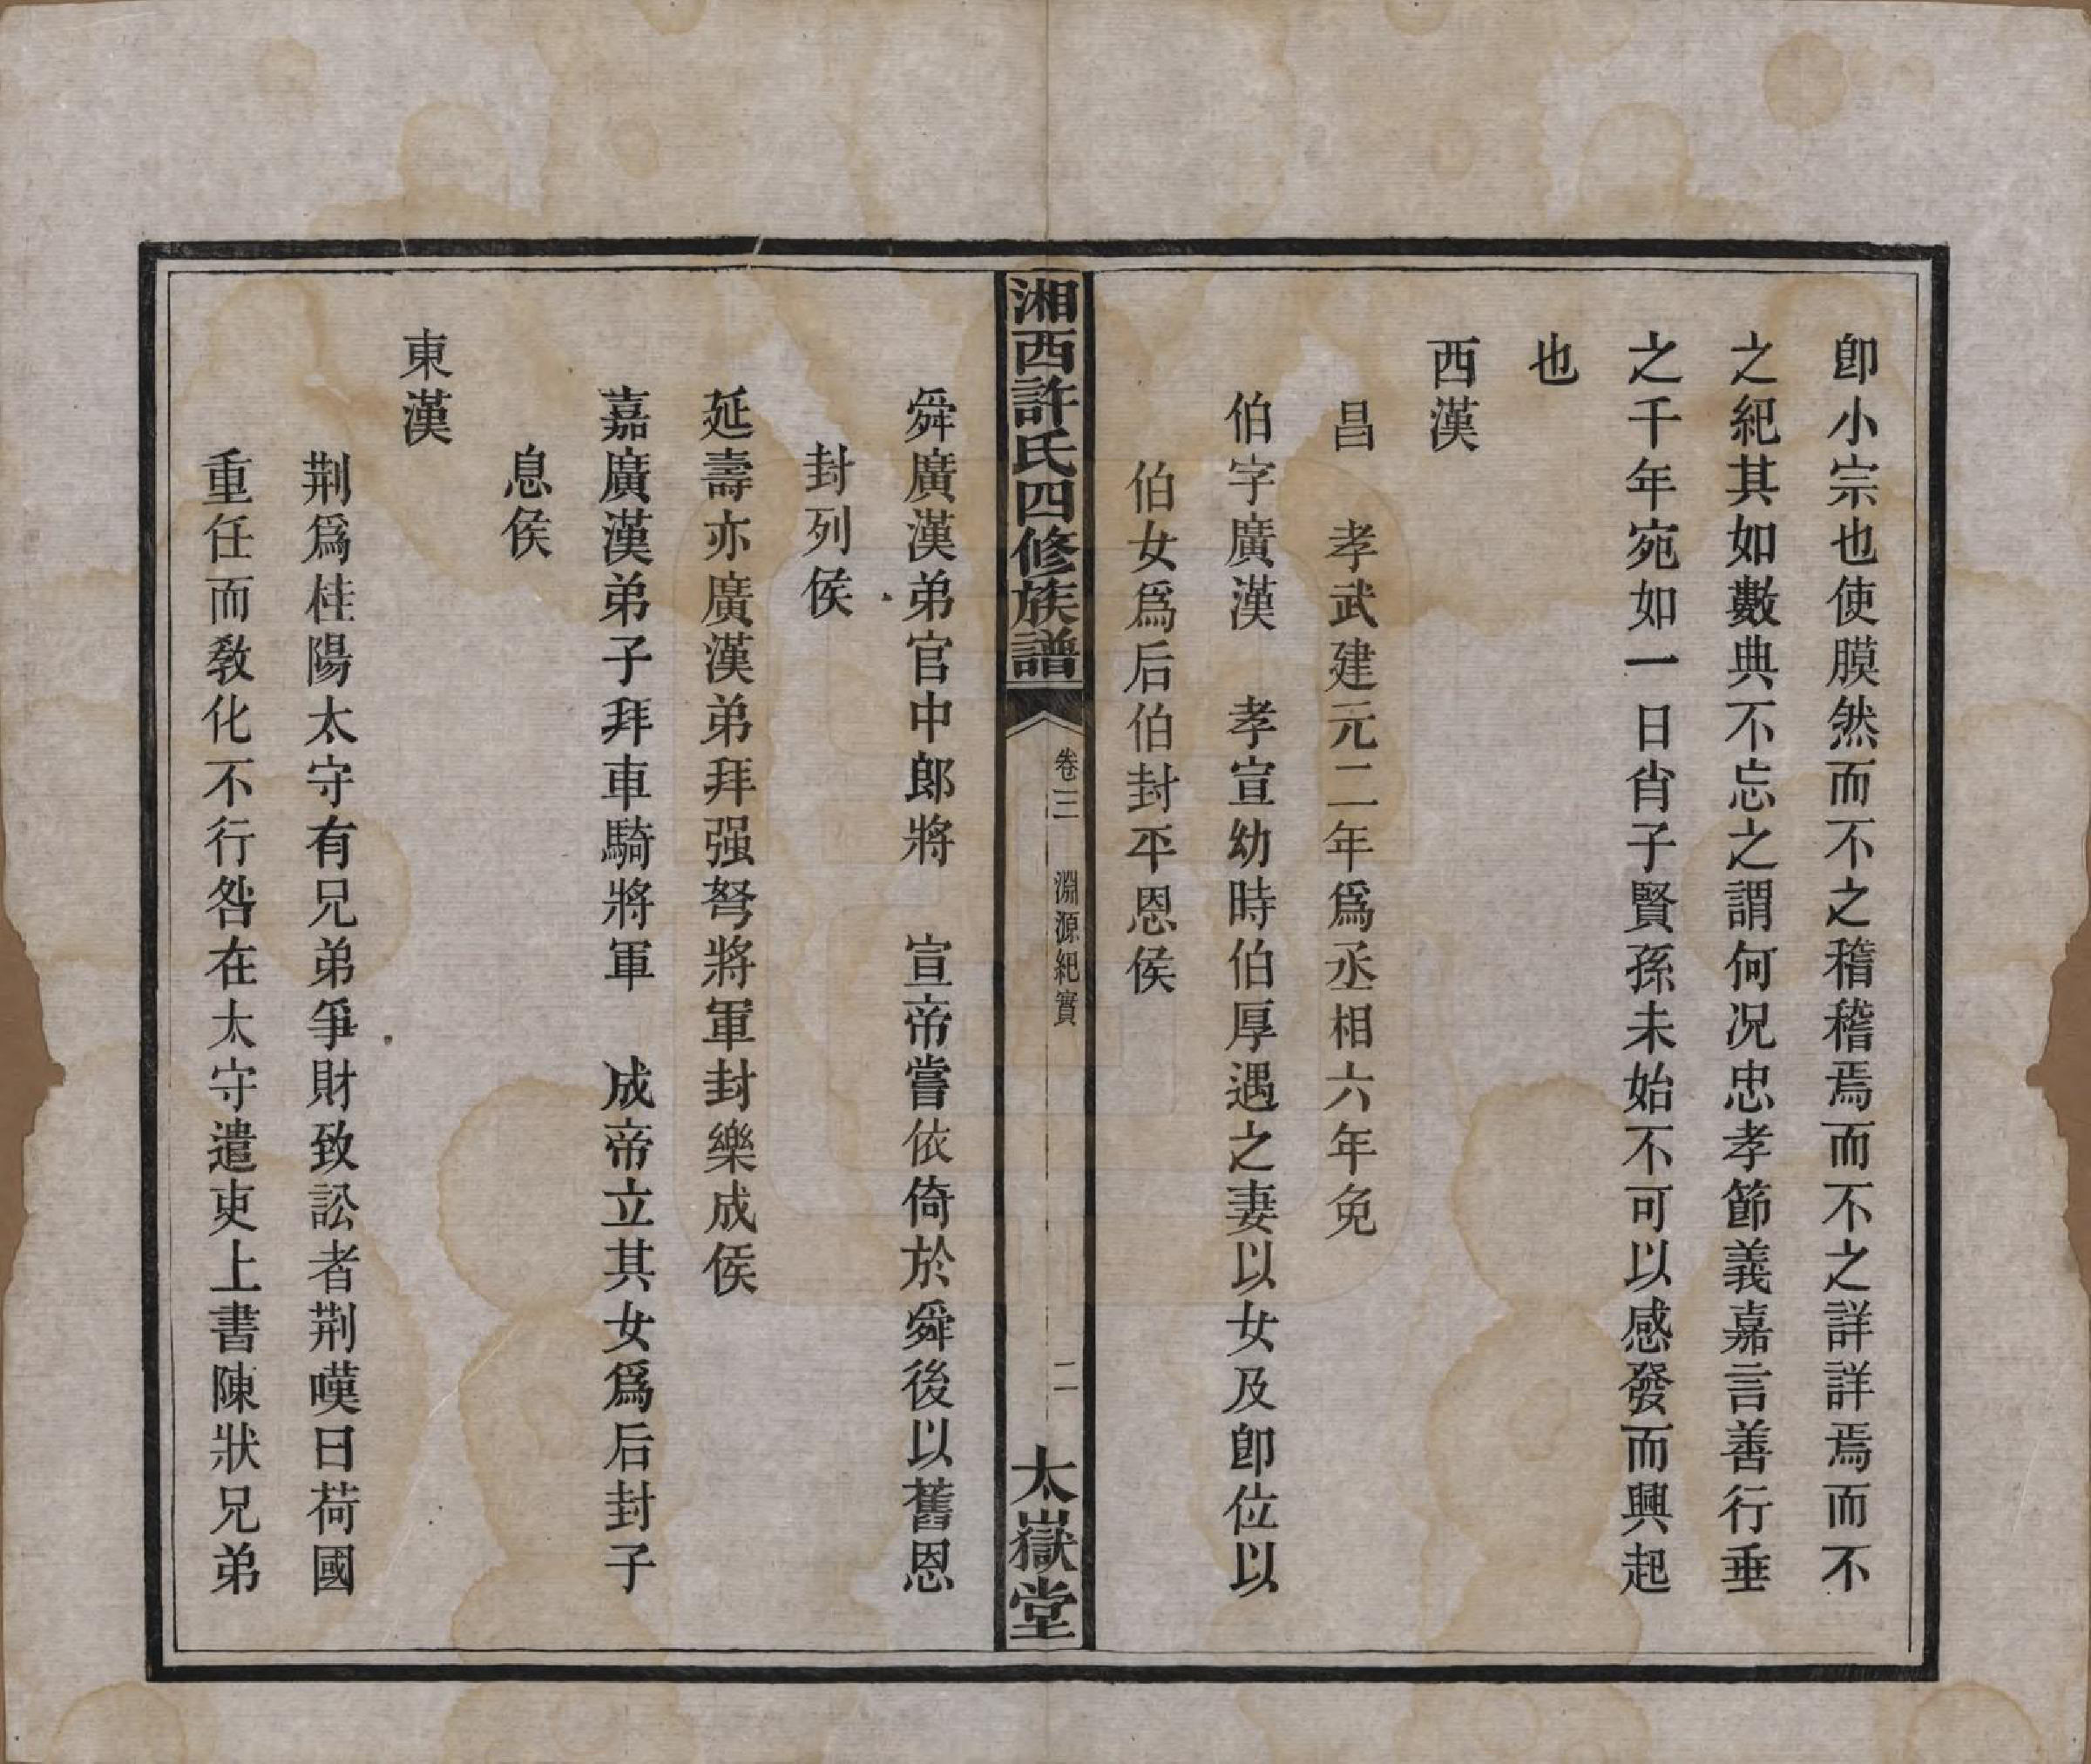 卽小宗也使膜然而不之稽稽焉而不之詳詳焉而不
之紀其如數典不忘之謂何况忠孝節義嘉言善行垂
之千年宛如一日肖子賢孫未始不可以感發而興起
也
西漢
昌　孝武建元二年爲丞相六年免
伯字廣漢　孝宣幼時伯厚遇之妻以女及卽位以
伯女爲后伯封平恩侯
湘西許氏四修族譜
卷三　淵源紀實
二
太嶽堂
舜廣漢弟官中郞將　宣帝嘗依倚於舜後以舊恩
封列侯
延壽亦廣漢弟拜强弩將軍封樂成侯
嘉廣漢弟子拜車騎將軍　成帝立其女爲后封子
息侯
東漢
荆爲桂陽太守有兄弟爭財致訟者荆嘆曰荷國
重任而敎化不行咎在太守遣吏上書陳狀兄弟